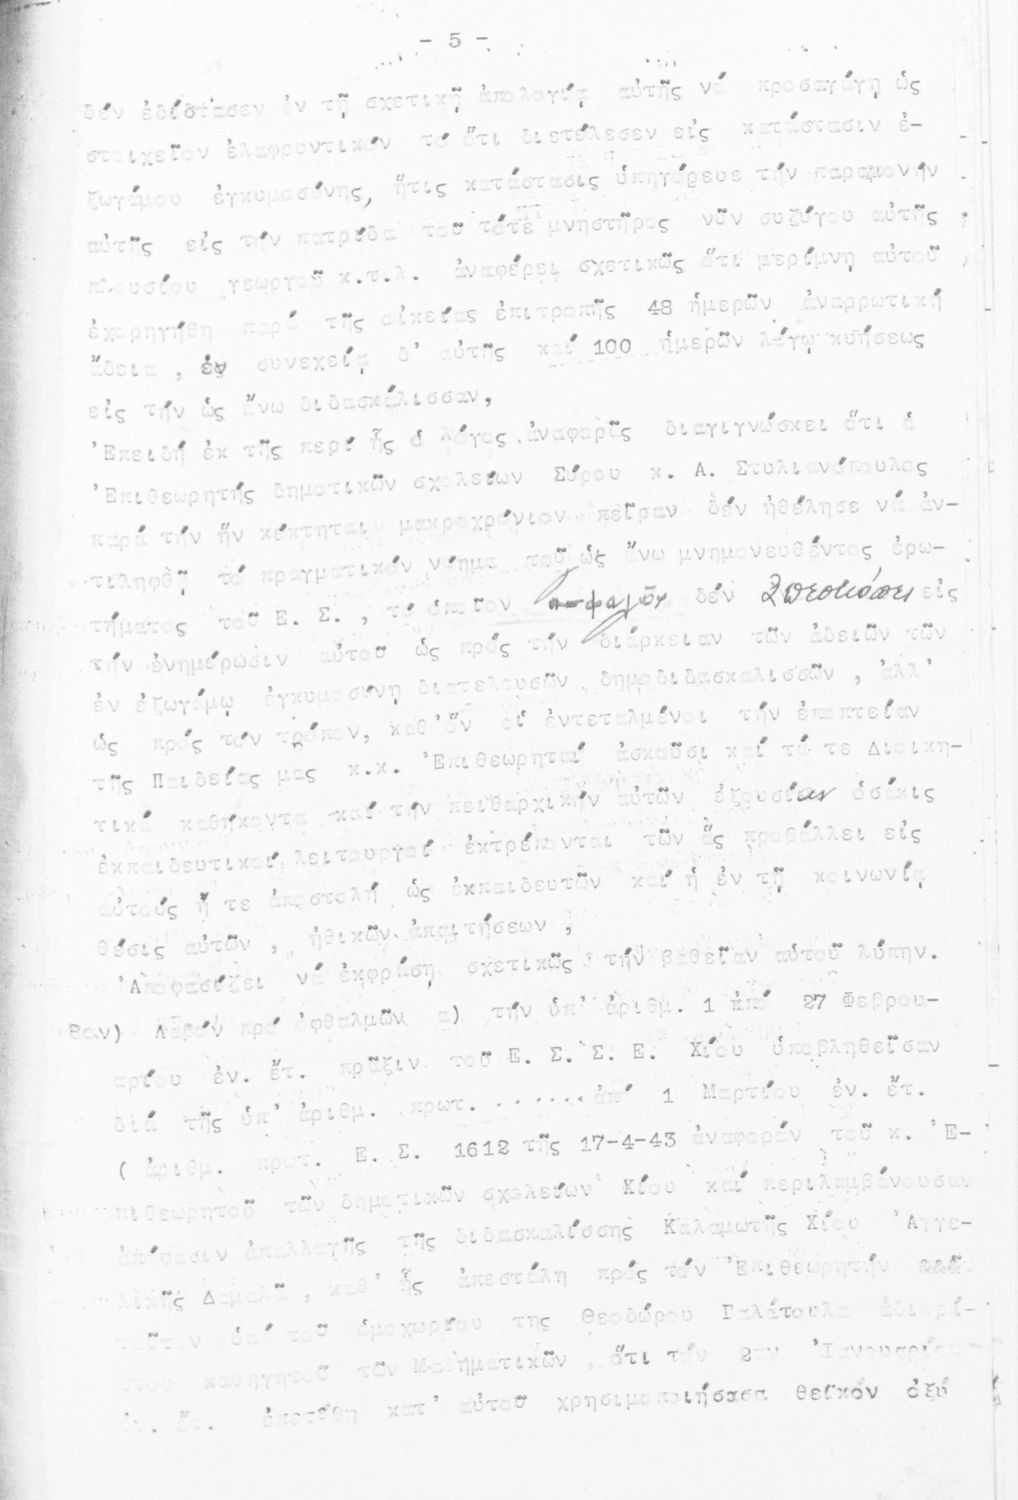 - 5 -
δέν ἐδίστασεν ἐν τῇ σχετικῇ ἀπολογίᾳ αὐτῆς νά προσαγάγῃ ὡς
στοιχεῖον ἐλαφρυντικόν τό ὅτι διετέλεσεν εἰς κατάστασιν ἐ-
ξωγάμου ἐγκυμοσύνης, ἥτις κατάστασις ὑπηγόρευε τήν παραμονήν
αὐτῆς εἰς τήν πατρίδα τοῦ τότε μνηστῆρος νῦν συζύγου αὐτῆς
πλουσίου γεωργοῦ κ.τ.λ. ἀναφέρει σχετικῶς ὅτι μερίμνῃ αὐτοῦ
ἐχορηγήθη παρά τῆς οἰκείας ἐπιτροπῆς 48 ἡμερῶν ἀναρρωτική
ἄδεια, ἐν συνεχείᾳ δ' αὐτῆς καί 100 ἡμερῶν λόγῳ κυήσεως
εἰς τήν ὡς ἄνω διδασκάλισσαν,
'Επειδή ἐκ τῆς περί ἧς ὁ λόγος ἀναφορᾶς διαγιγνώσκει ὅτι ὁ
'Επιθεωρητής δημοτικῶν σχολείων Σύρου κ. Α. Στυλιανόπουλος
παρά τήν ἥν κέκτηται μακροχρόνιον πεῖραν δέν ἠθέλησε νά ἀν-
τιληφθῇ τό πραγματικόν νόημα τοῦ ὡς ἄνω μνημονευθέντος ἐρω-
τήματος τοῦ Ε. Σ., τό ὁποῖον ἀσφαλῶς δέν ἀπεσκόπει εἰς
τήν ἐνημέρωσιν αὐτοῦ ὡς πρός τήν διάρκειαν τῶν ἀδειῶν τῶν
ἐν ἐξωγάμῳ ἐγκυμοσύνῃ διατελουσῶν δημοδιδασκαλισσῶν, ἀλλ'
ὡς πρός τόν τρόπον, καθ' ὅν οἱ ἐντεταλμένοι τήν ἐποπτείαν
τῆς Παιδείας μας κ.κ. 'Επιθεωρηταί ἀσκοῦσι καί τά τε Διοικη-
τικά καθήκοντα καί τήν πειθαρχικήν αὐτῶν ἐξουσίαν ὁσάκις
ἐκπαιδευτικοί λειτουργοί ἐκτρέπονται τῶν ἅς προβάλλει εἰς
αὐτούς ἥ τε ἀποστολή ὡς ἐκπαιδευτῶν καί ἡ ἐν τῇ κοινωνίᾳ
θέσις αὐτῶν, ἠθικῶν ἀπαιτήσεων,
'Αποφασίζει νά ἐκφράσῃ σχετικῶς τήν βαθεῖαν αὐτοῦ λύπην.
8ον) Λαβόν πρό ὀφθαλμῶν α) τήν ὑπ' ἀριθμ. 1 ἀπό 27 Φεβρου-
αρίου ἐν. ἔτ. πρᾶξιν τοῦ Ε. Σ. Σ. Ε. Χίου ὑποβληθεῖσαν
διά τῆς ὑπ' ἀριθμ. πρωτ. ...... ἀπό 1 Μαρτίου ἐν. ἔτ.
( ἀριθμ. πρωτ. Ε. Σ. 1612 τῆς 17-4-43 ἀναφοράν τοῦ κ. 'Ε-
πιθεωρητοῦ τῶν δημοτικῶν σχολείων Χίου καί περιλαμβάνουσαν
ἀπόφασιν ἀπαλλαγῆς τῆς διδασκαλίσσης Καλαμωτῆς Χίου 'Αγγε-
λικῆς Δαμαλᾶ, καθ' ἧς ἀπεστάλη πρός τόν 'Επιθεωρητήν &&&
τοῦτον ὑπό τοῦ ὁμοχωρίου της Θεοδώρου Γαλάτουλα ἀδιορί-
στου καθηγητοῦ τῶν Μαθηματικῶν, ὅτι τήν 2αν 'Ιανουαρίου
ἐν. ἔτ. ἐπετέθη κατ' αὐτοῦ χρησιμοποιήσασα θεϊκόν ὀξύ